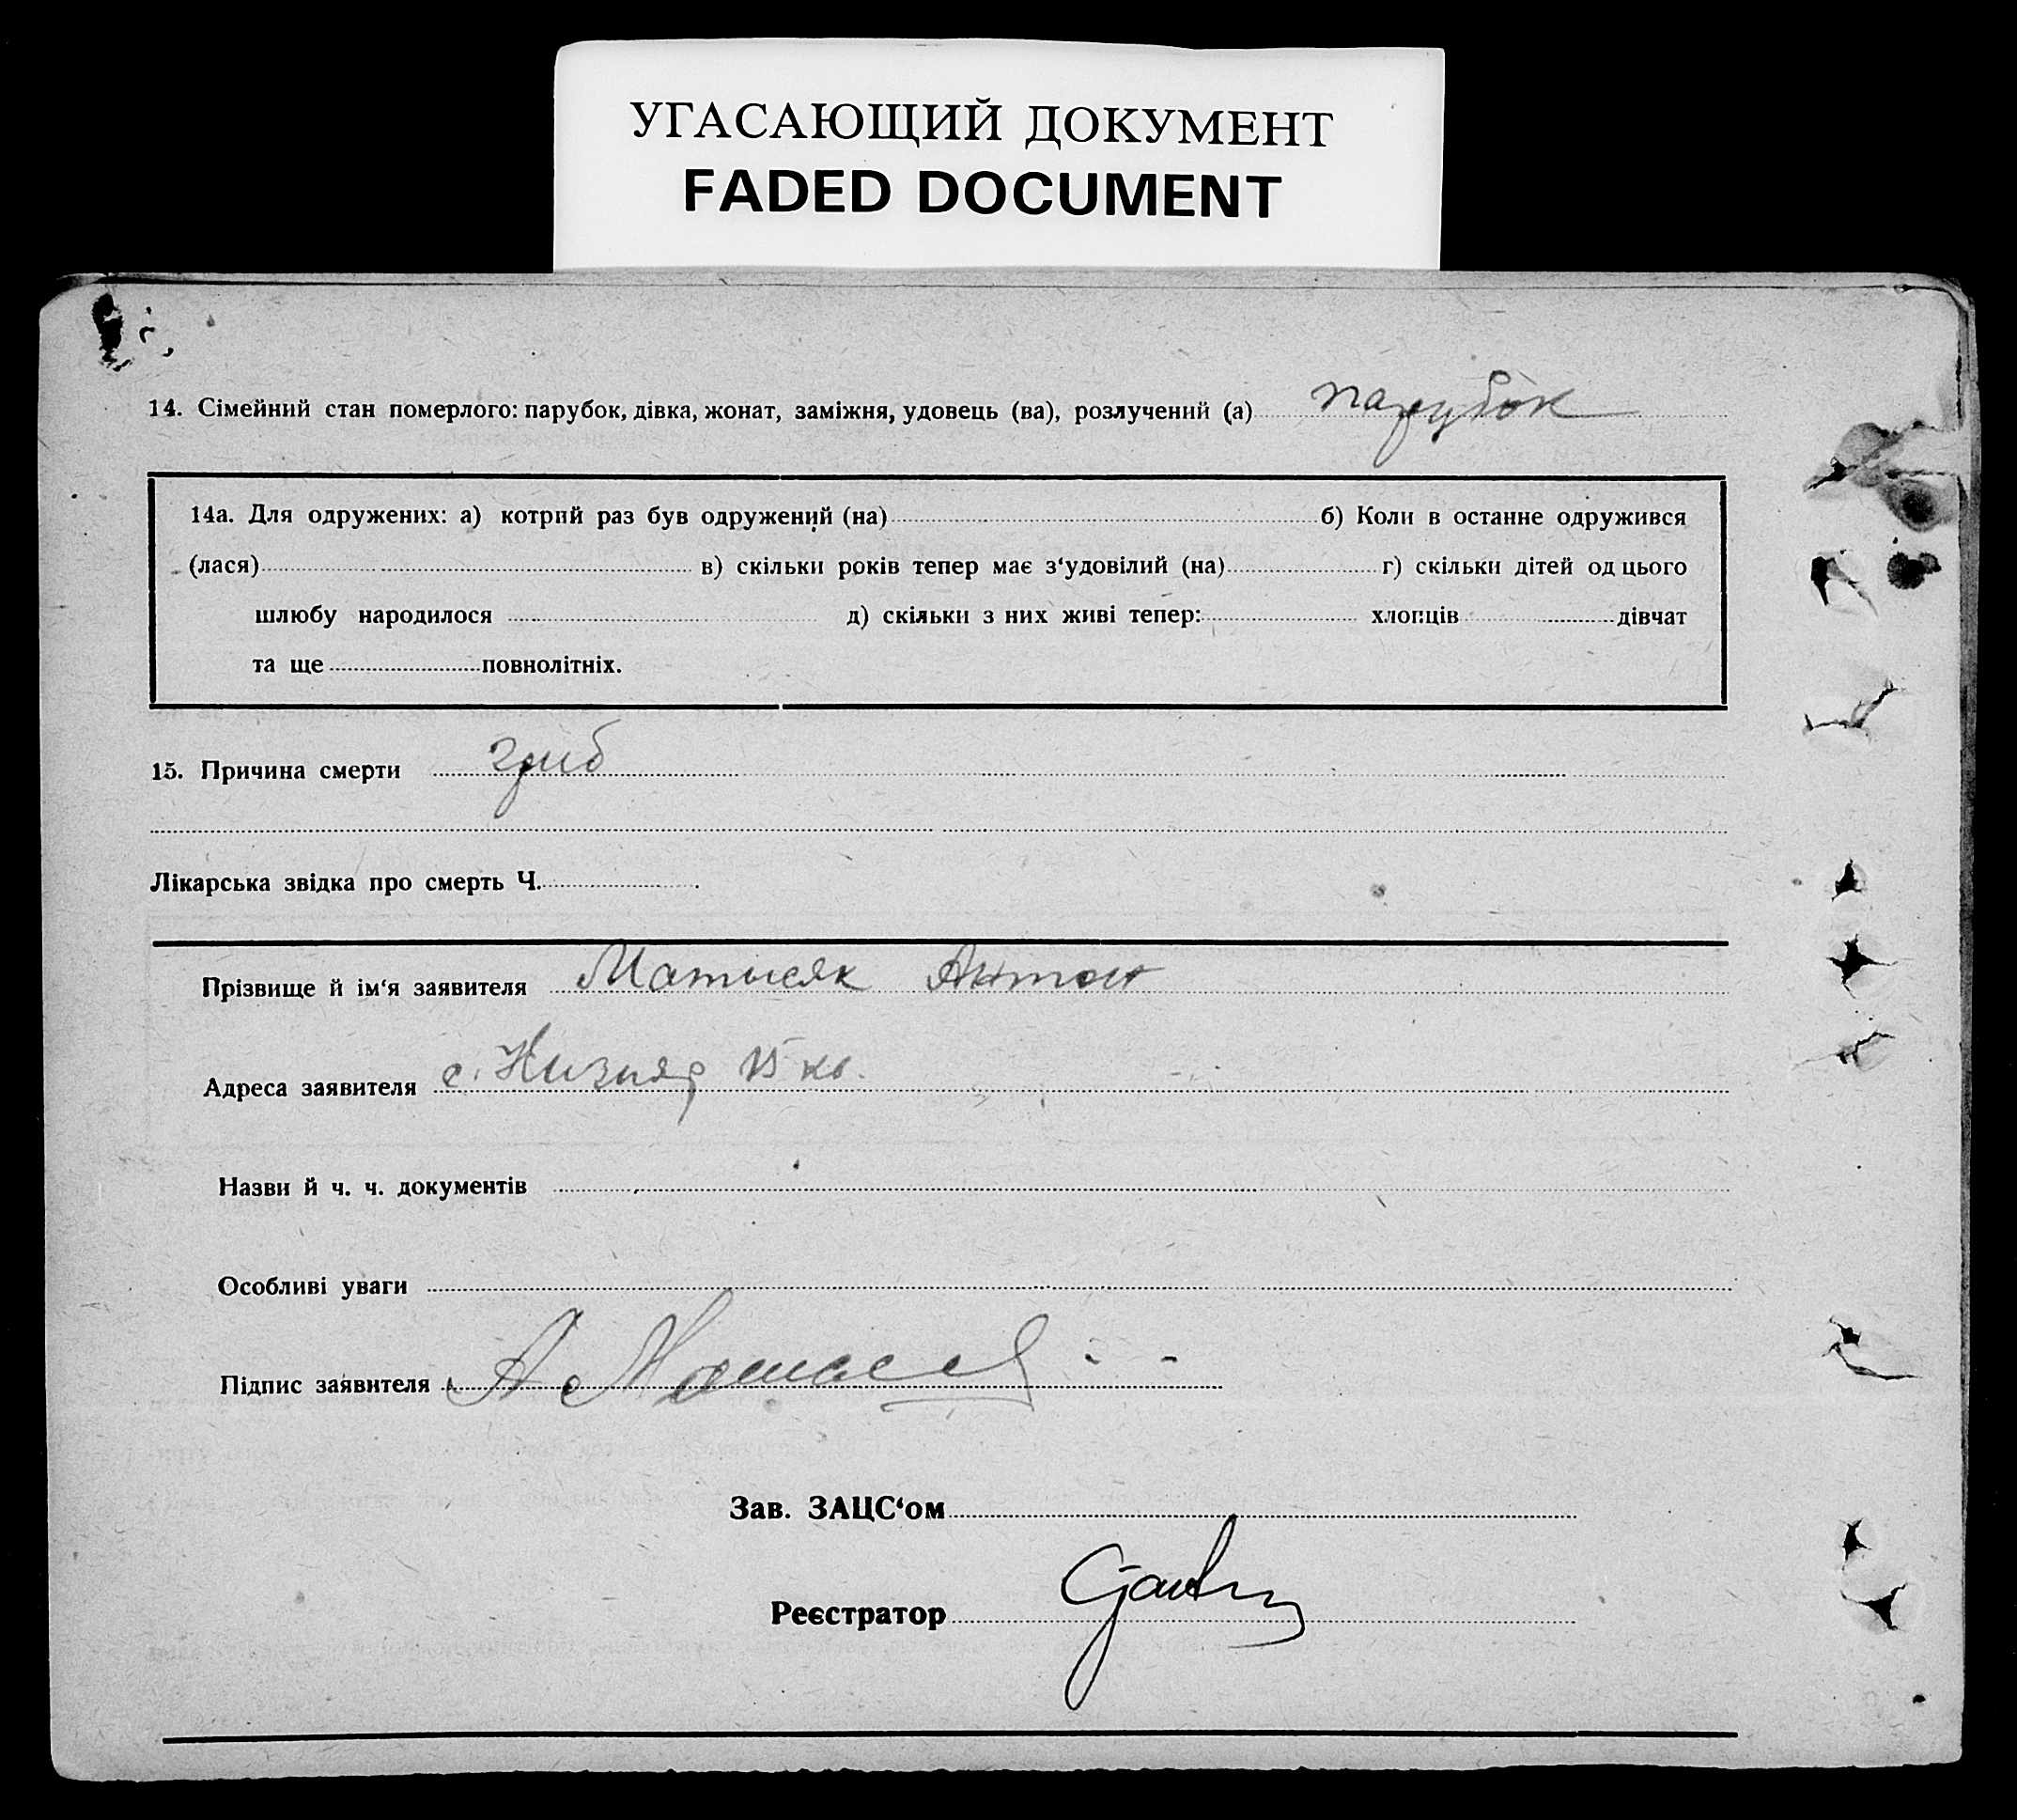 УГАСАЮЩИЙ ДОКУМЕНТ
FADED DOCUMENT
14. Сімейний стан померлого: парубок, дівка, жонат, заміжня, удовець (ва), розлучений (а) парубок
14а. Для одружених: а) котрий раз був одружений (на) б) Коли в останне одружився
(лася) в) скільки років тепер має з‘удовілий (на) г) скільки дітей од цього
шлюбу народилося д) скільки з них живі тепер: хлопців дівчат
та ще повнолітніх.
15. Причина смерти гриб
Лікарська звідка про смерть Ч.
Прізвище й ім‘я заявителя Матысяк Антон
Адреса заявителя с.
Назви й ч. ч. документів
Особливі уваги
Підпис заявителя А
Зав. ЗАЦС‘ом
Реєстратор